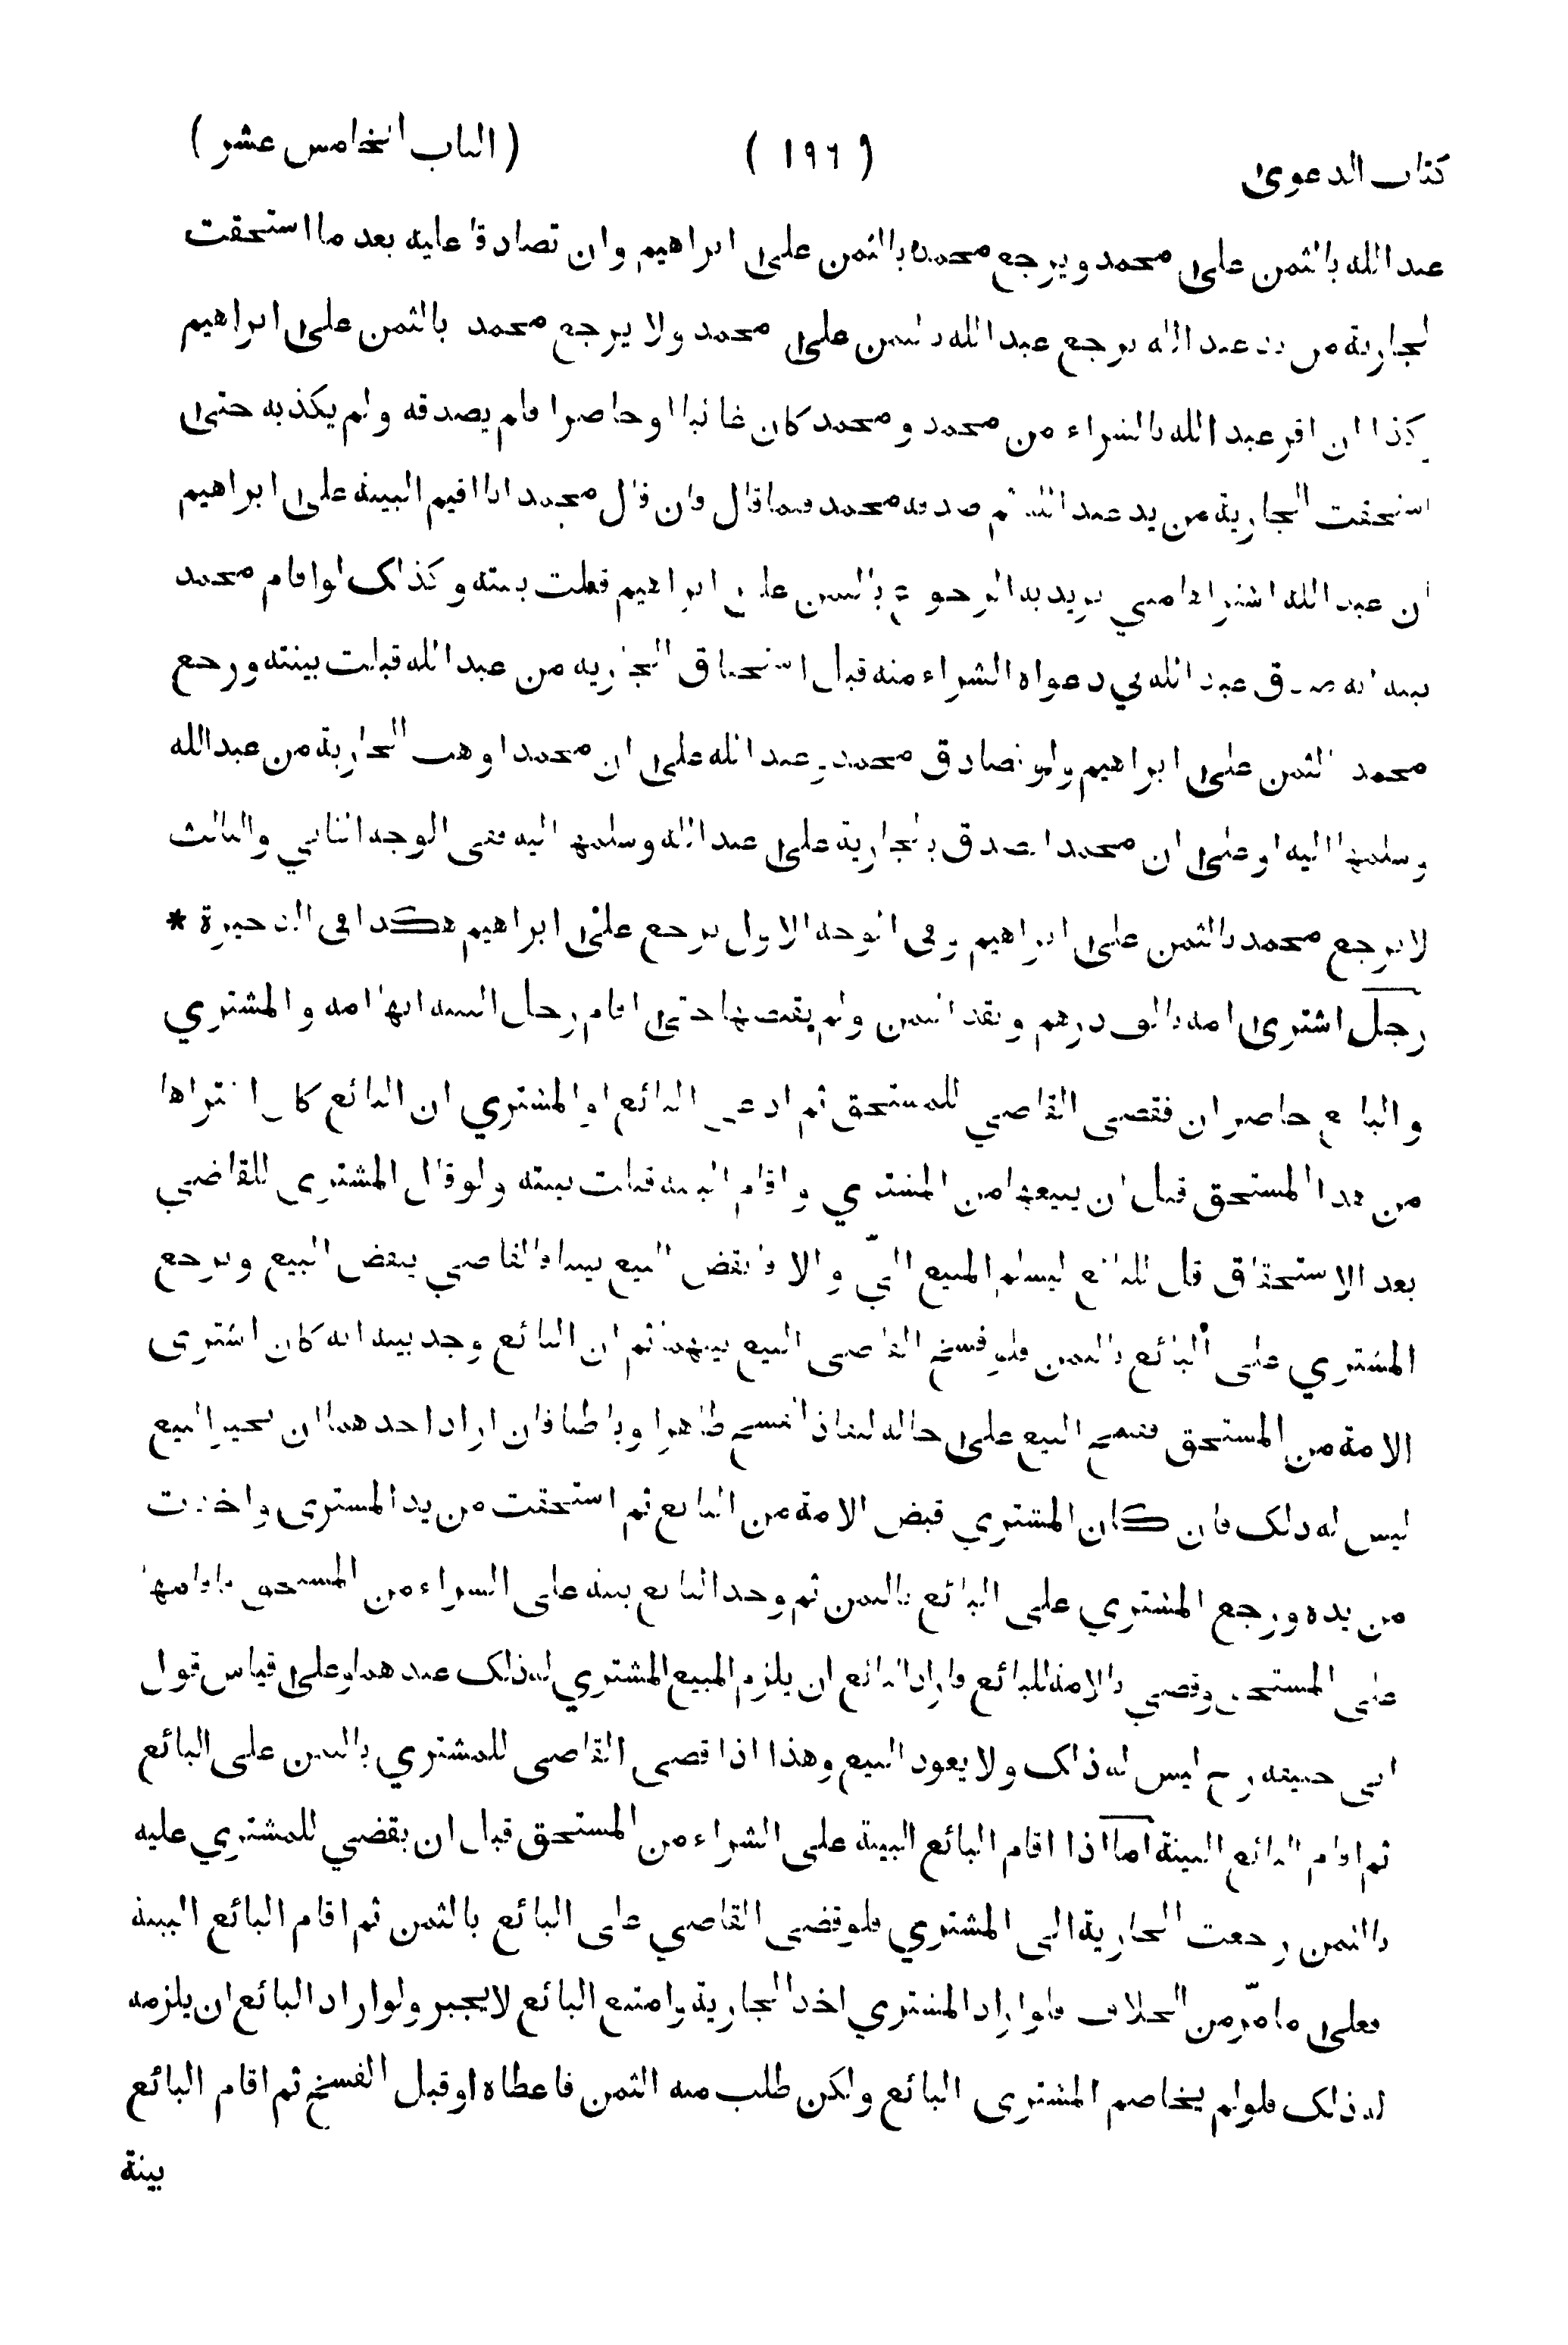 كتاب الدعوى ( ١٩٦ ) ( الباب الخامس عشر )
عبد الله بالثمن على محمد ويرجع محمد بالثمن على ابراهيم وان تصادقا عليه بعد ما استحقت
الجارية من يد عبد الله يرجع عبد الله بالثمن على محمد ولا يرجع محمد بالثمن على ابراهيم
وكذا ان اقر عبد الله بالشراء من محمد ومحمد كان غائبا او حاضرا فلم يصدقه ولم يكذبه حتى
استحقت الجارية من يد عبد الله ثم صدقه محمد فيما قال وان قال محمد انا اقيم البينة على ابراهيم
ان عبد الله اشتراها مني يريد به الرجوع بالثمن على ابراهيم قبلت بينته وكذلك لو اقام محمد
بينة انه صدق عبد الله في دعواه الشراء منه قبل استحقاق الجارية من عبد الله قبلت بينته ورجع
محمد بالثمن على ابراهيم ولو تصادق محمد وعبد الله على ان محمدا وهب الجارية من عبد الله
وسلمها اليه او على ان محمدا تصدق بالجارية على عبد الله وسلمها اليه ففى الوجه الثاني والثالث
لا يرجع محمد بالثمن على ابراهيم وفى الوجه الاول يرجع على ابراهيم هكذا فى الذخيرة *
رجل اشترى امة بالف درهم ونقد الثمن ولم يقبضها حتى اقام رجل البينة انها امته والمشتري
والبائع حاضران فقضى القاضي للمستحق ثم ادعى البائع او المشتري ان البائع كان اشتراها
من هذا المستحق قبل ان يبيعها من المشتري واقام البينة قبلت بينته ولو قال المشترى للقاضي
بعد الاستحقاق قل للبائع ليسلم المبيع اليّ والا فانقض البيع بيننا فالقاضي ينقض البيع ويرجع
المشتري على البائع بالثمن فلو فسخ القاضى البيع بينهما ثم ان البائع وجد بينة انه كان اشترى
الامة من المستحق ففسخ البيع على حاله لنفاذ الفسخ ظاهرا وباطنا فان اراد احدهما ان يجيز البيع
ليس له ذلك فان كان المشتري قبض الامة من البائع ثم استحقت من يد المشترى واخذت
من يده ورجع المشتري على البائع بالثمن ثم وجد البائع بينة على الشراء من المستحق فاقامها
على المستحق وقضي بالامة للبائع فاراد البائع ان يلزم المبيع المشتري له ذلك عندهما وعلى قياس قول
ابى حنيفة رح ليس له ذلك ولا يعود البيع وهذا اذا قضى القاضى للمشتري بالثمن على البائع
ثم اقام البائع البينة اما اذا اقام البائع البينة على الشراء من المستحق قبل ان يقضي للمشتري عليه
بالثمن رجعت الجارية الى المشتري فلو قضى القاضي على البائع بالثمن ثم اقام البائع البينة
فعلى ما مرّ من الخلاف فلو اراد المشتري اخذ الجارية وامتنع البائع لا يجبر ولو اراد البائع ان يلزمه
له ذلك فلو لم يخاصم المشترى البائع ولكن طلب منه الثمن فاعطاه او قبل الفسخ ثم اقام البائع
بينة